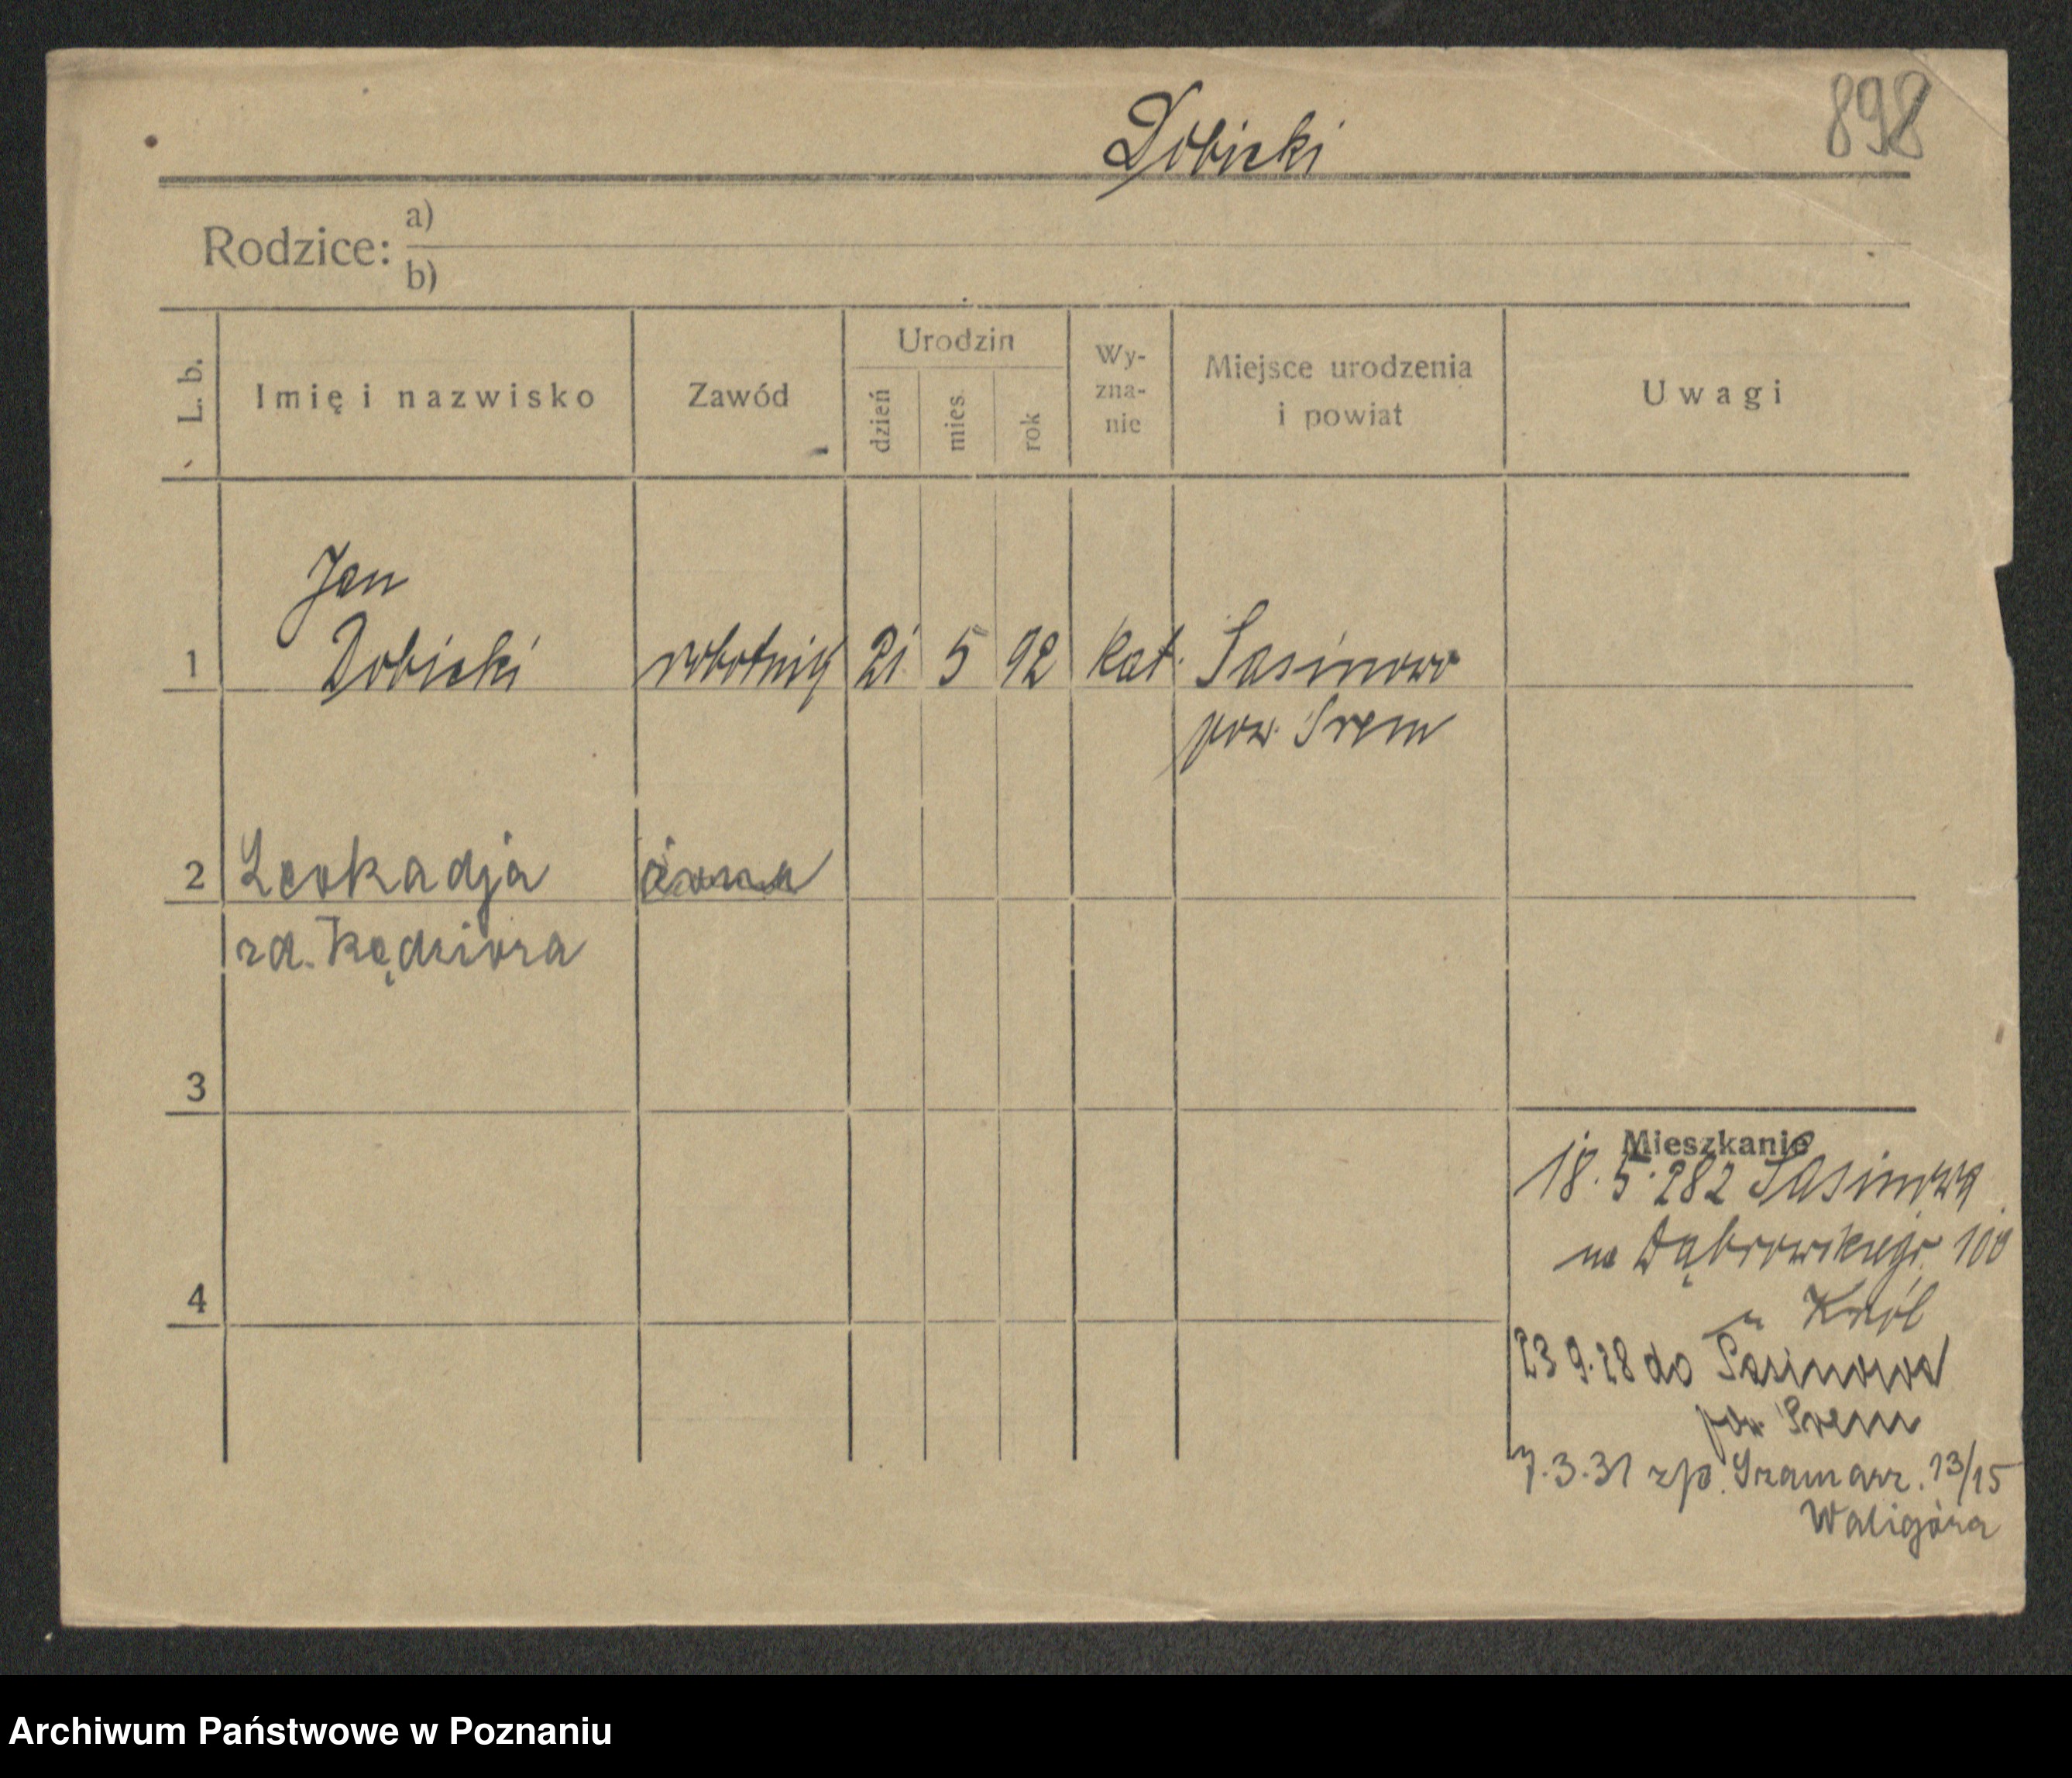 Dobicki
898
Rodzice: a)
b)
L. b.
Imię i nazwisko
Zawód
Urodzin
dzień
mies.
rok
Wy-
zna-
nie
Miejsce urodzenia
i powiat
Uwagi
Jan
1 Dobicki robotnik 21 5 92 kat. Sasinowo
pow. Śrem
2 Leokadja żona
rd. Kędziora
3
4
Mieszkanie
18.5.282 Sasinowa
na Dąbrowskiego 100
u Król
23 9.28 do Sasinowa
pow. Śrem
7.3.31 zp. Szamarz. 13/15
Waligóra
Archiwum Państwowe w Poznaniu